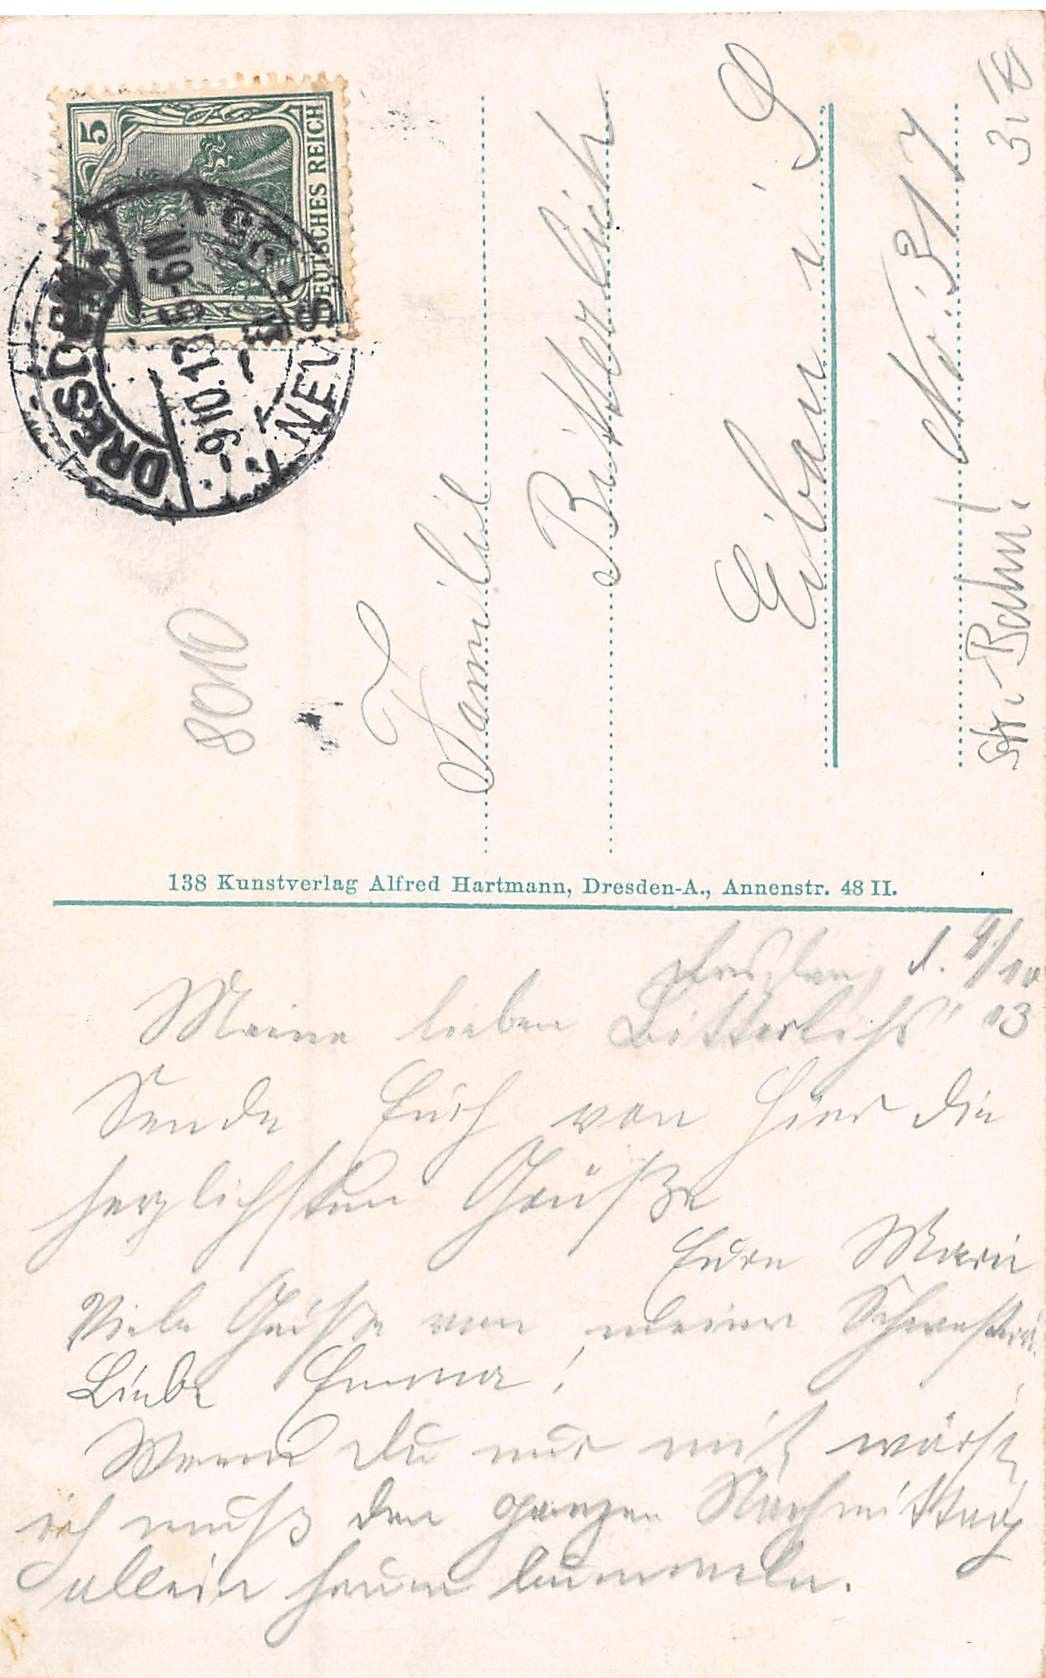 5
DEUTSCHES REICH
DRESDEN
NEUST.
-9.10.13. 5-6N.
8010
Familie
Bitterlich
Eibau i. S
No. 317
Str. Bahn!
138 Kunstverlag Alfred Hartmann, Dresden-A., Annenstr. 48 II.
Dresden, d. 9/10
13
Meine lieben Bitterlichs!
Sende Euch von hier die
herzlichsten Grüße
Eure Marie
Viele Grüße von meiner Schwester.
Liebe Emma!
Wenn Du nur mit wärst,
ich muß den ganzen Nachmittag
allein herum bummeln.